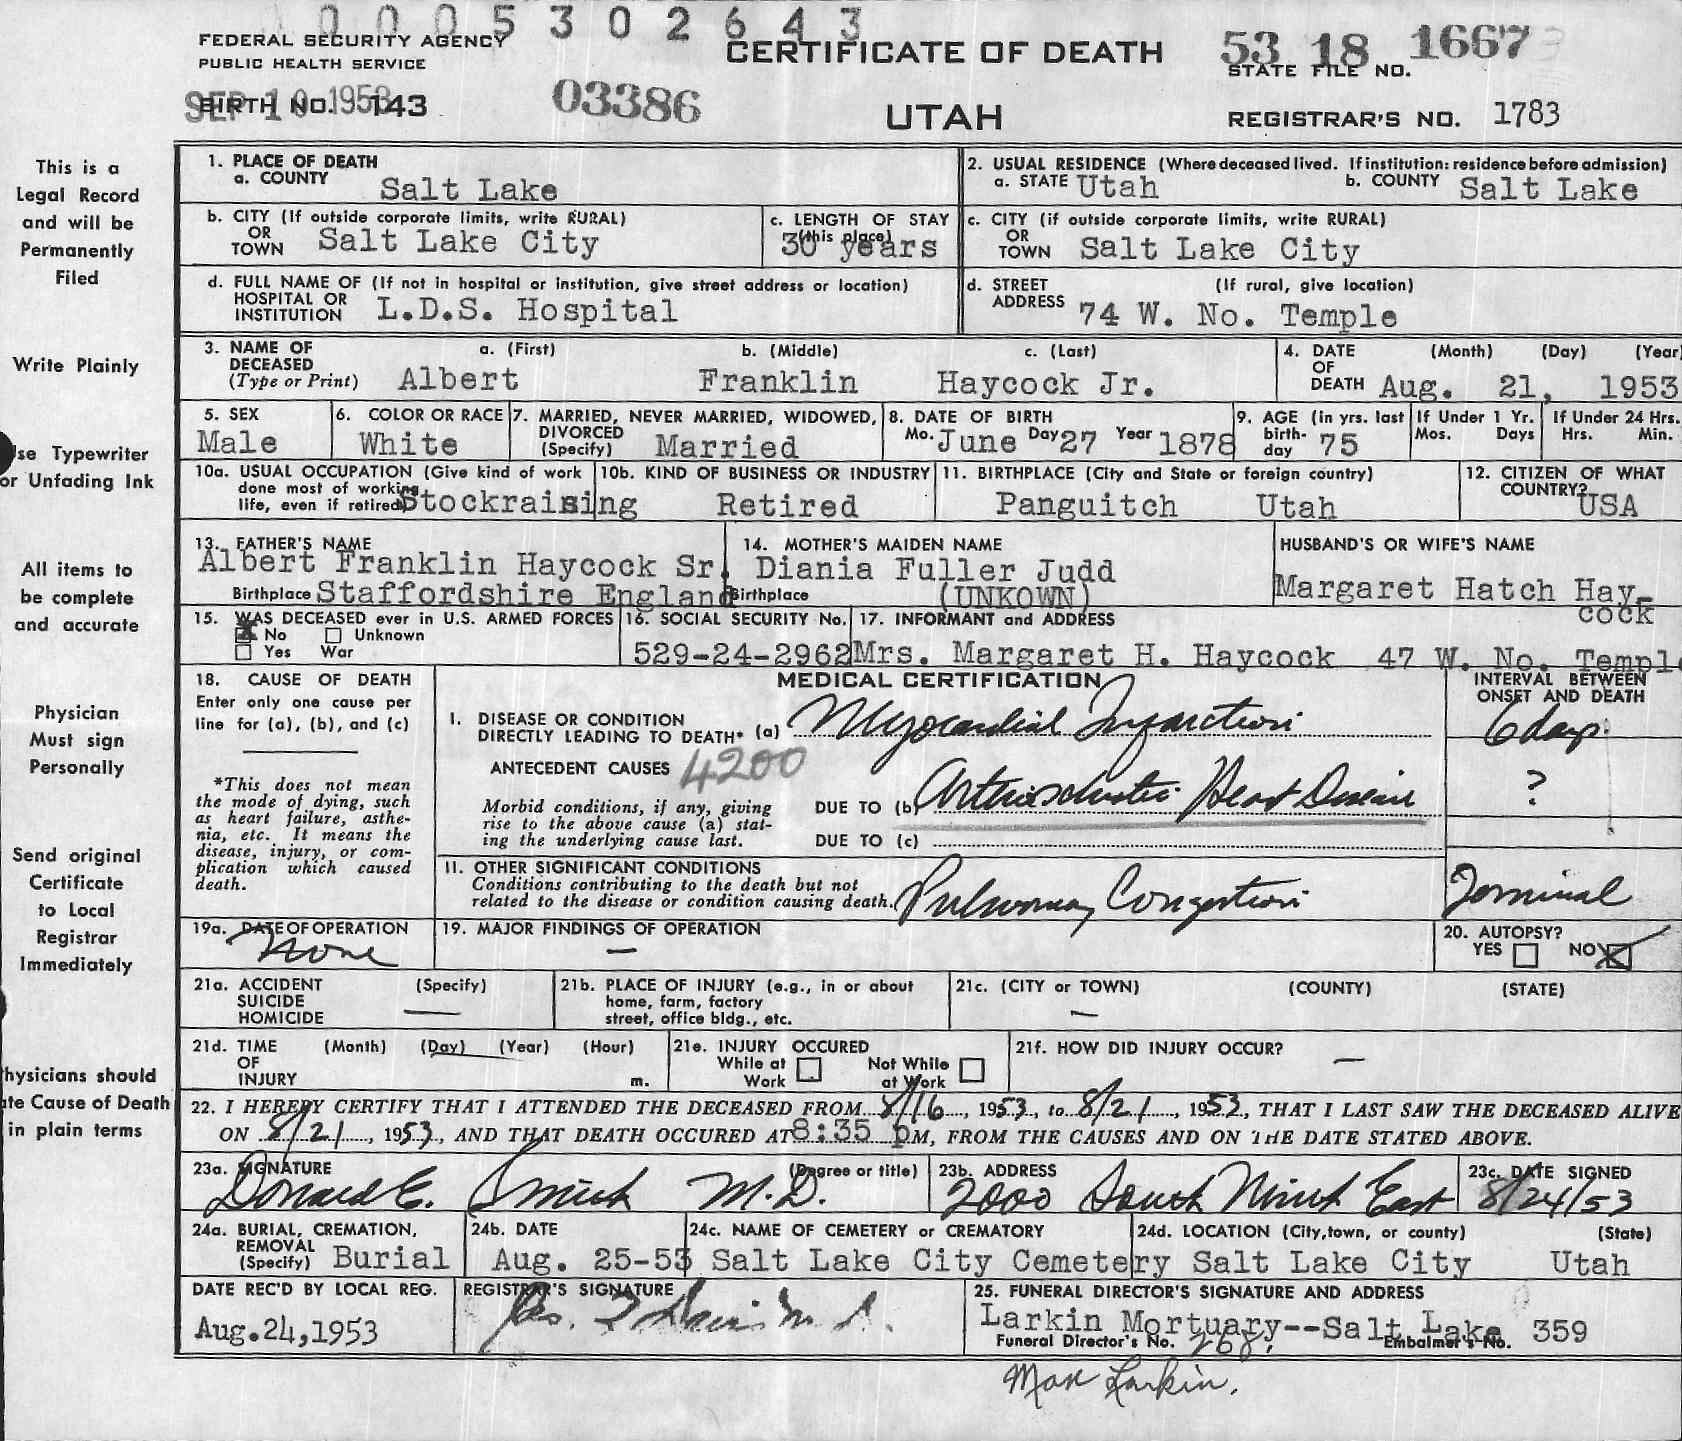 0005302643
FEDERAL SECURITY AGENCY
PUBLIC HEALTH SERVICE
CERTIFICATE OF DEATH
53 18 1667
STATE FILE NO.
SEP 10 1953
BIRTH NO. 143
03386
UTAH
REGISTRAR'S NO. 1783
This is a
Legal Record
and will be
Permanently
Filed
Write Plainly
se Typewriter
or Unfading Ink
All items to
be complete
and accurate
Physician
Must sign
Personally
Send original
Certificate
to Local
Registrar
Immediately
hysicians should
te Cause of Death
in plain terms
1. PLACE OF DEATH
a. COUNTY Salt Lake
2. USUAL RESIDENCE (Where deceased lived. If institution: residence before admission)
a. STATE Utah b. COUNTY Salt Lake
b. CITY (If outside corporate limits, write RURAL)
OR
TOWN Salt Lake City
c. LENGTH OF STAY
(this place)
30 years
c. CITY (if outside corporate limits, write RURAL)
OR
TOWN Salt Lake City
d. FULL NAME OF (If not in hospital or institution, give street address or location)
HOSPITAL OR
INSTITUTION L.D.S. Hospital
d. STREET (If rural, give location)
ADDRESS 74 W. No. Temple
3. NAME OF a. (First) b. (Middle) c. (Last)
DECEASED
(Type or Print) Albert Franklin Haycock Jr.
4. DATE (Month) (Day) (Year
OF
DEATH Aug. 21, 1953
5. SEX
Male
6. COLOR OR RACE
White
7. MARRIED, NEVER MARRIED, WIDOWED,
DIVORCED
(Specify) Married
8. DATE OF BIRTH
Mo. June Day 27 Year 1878
9. AGE (in yrs. last
birth-
day 75
If Under 1 Yr.
Mos. Days
If Under 24 Hrs.
Hrs. Min.
10a. USUAL OCCUPATION (Give kind of work
done most of working
life, even if retired) Stockraising
10b. KIND OF BUSINESS OR INDUSTRY
Retired
11. BIRTHPLACE (City and State or foreign country)
Panguitch Utah
12. CITIZEN OF WHAT
COUNTRY?
USA
13. FATHER'S NAME
Albert Franklin Haycock Sr.
Birthplace Staffordshire England
14. MOTHER'S MAIDEN NAME
Diania Fuller Judd
Birthplace (UNKOWN)
HUSBAND'S OR WIFE'S NAME
Margaret Hatch Hay-
cock
15. WAS DECEASED ever in U.S. ARMED FORCES
No Unknown
Yes War
16. SOCIAL SECURITY No.
529-24-2962
17. INFORMANT and ADDRESS
Mrs. Margaret H. Haycock 47 W. No. Temple
18. CAUSE OF DEATH
Enter only one cause per
line for (a), (b), and (c)
*This does not mean
the mode of dying, such
as heart failure, asthe-
nia, etc. It means the
disease, injury, or com-
plication which caused
death.
MEDICAL CERTIFICATION
INTERVAL BETWEEN
ONSET AND DEATH
I. DISEASE OR CONDITION
DIRECTLY LEADING TO DEATH* (a) Myocardial Infarction 6 days
ANTECEDENT CAUSES 4200
Morbid conditions, if any, giving
rise to the above cause (a) stat-
ing the underlying cause last.
DUE TO (b) Arteriosclerotic Heart Disease ?
DUE TO (c)
11. OTHER SIGNIFICANT CONDITIONS
Conditions contributing to the death but not
related to the disease or condition causing death. Pulmonary Congestion Terminal
19a. DATE OF OPERATION
None
19. MAJOR FINDINGS OF OPERATION
—
20. AUTOPSY?
YES NO X
21a. ACCIDENT (Specify)
SUICIDE
HOMICIDE —
21b. PLACE OF INJURY (e.g., in or about
home, farm, factory
street, office bldg., etc.
21c. (CITY or TOWN) (COUNTY) (STATE)
—
21d. TIME (Month) (Day) (Year) (Hour)
OF
INJURY m.
21e. INJURY OCCURED
While at Work Not While at Work
21f. HOW DID INJURY OCCUR? —
22. I HEREBY CERTIFY THAT I ATTENDED THE DECEASED FROM 8/16, 1953, to 8/21, 1953, THAT I LAST SAW THE DECEASED ALIVE
ON 8/21, 1953, AND THAT DEATH OCCURED AT 8:35 pM, FROM THE CAUSES AND ON THE DATE STATED ABOVE.
23a. SIGNATURE (Degree or title)
Donald E. Smith M.D.
23b. ADDRESS
2000 South Ninth East
23c. DATE SIGNED
8/24/53
24a. BURIAL, CREMATION,
REMOVAL
(Specify) Burial
24b. DATE
Aug. 25-53
24c. NAME OF CEMETERY or CREMATORY
Salt Lake City Cemetery
24d. LOCATION (City, town, or county) (State)
Salt Lake City Utah
DATE REC'D BY LOCAL REG.
Aug.24,1953
REGISTRAR'S SIGNATURE
25. FUNERAL DIRECTOR'S SIGNATURE AND ADDRESS
Larkin Mortuary--Salt Lake 359
Funeral Director's No. 268. Embalmer's No.
Max Larkin.